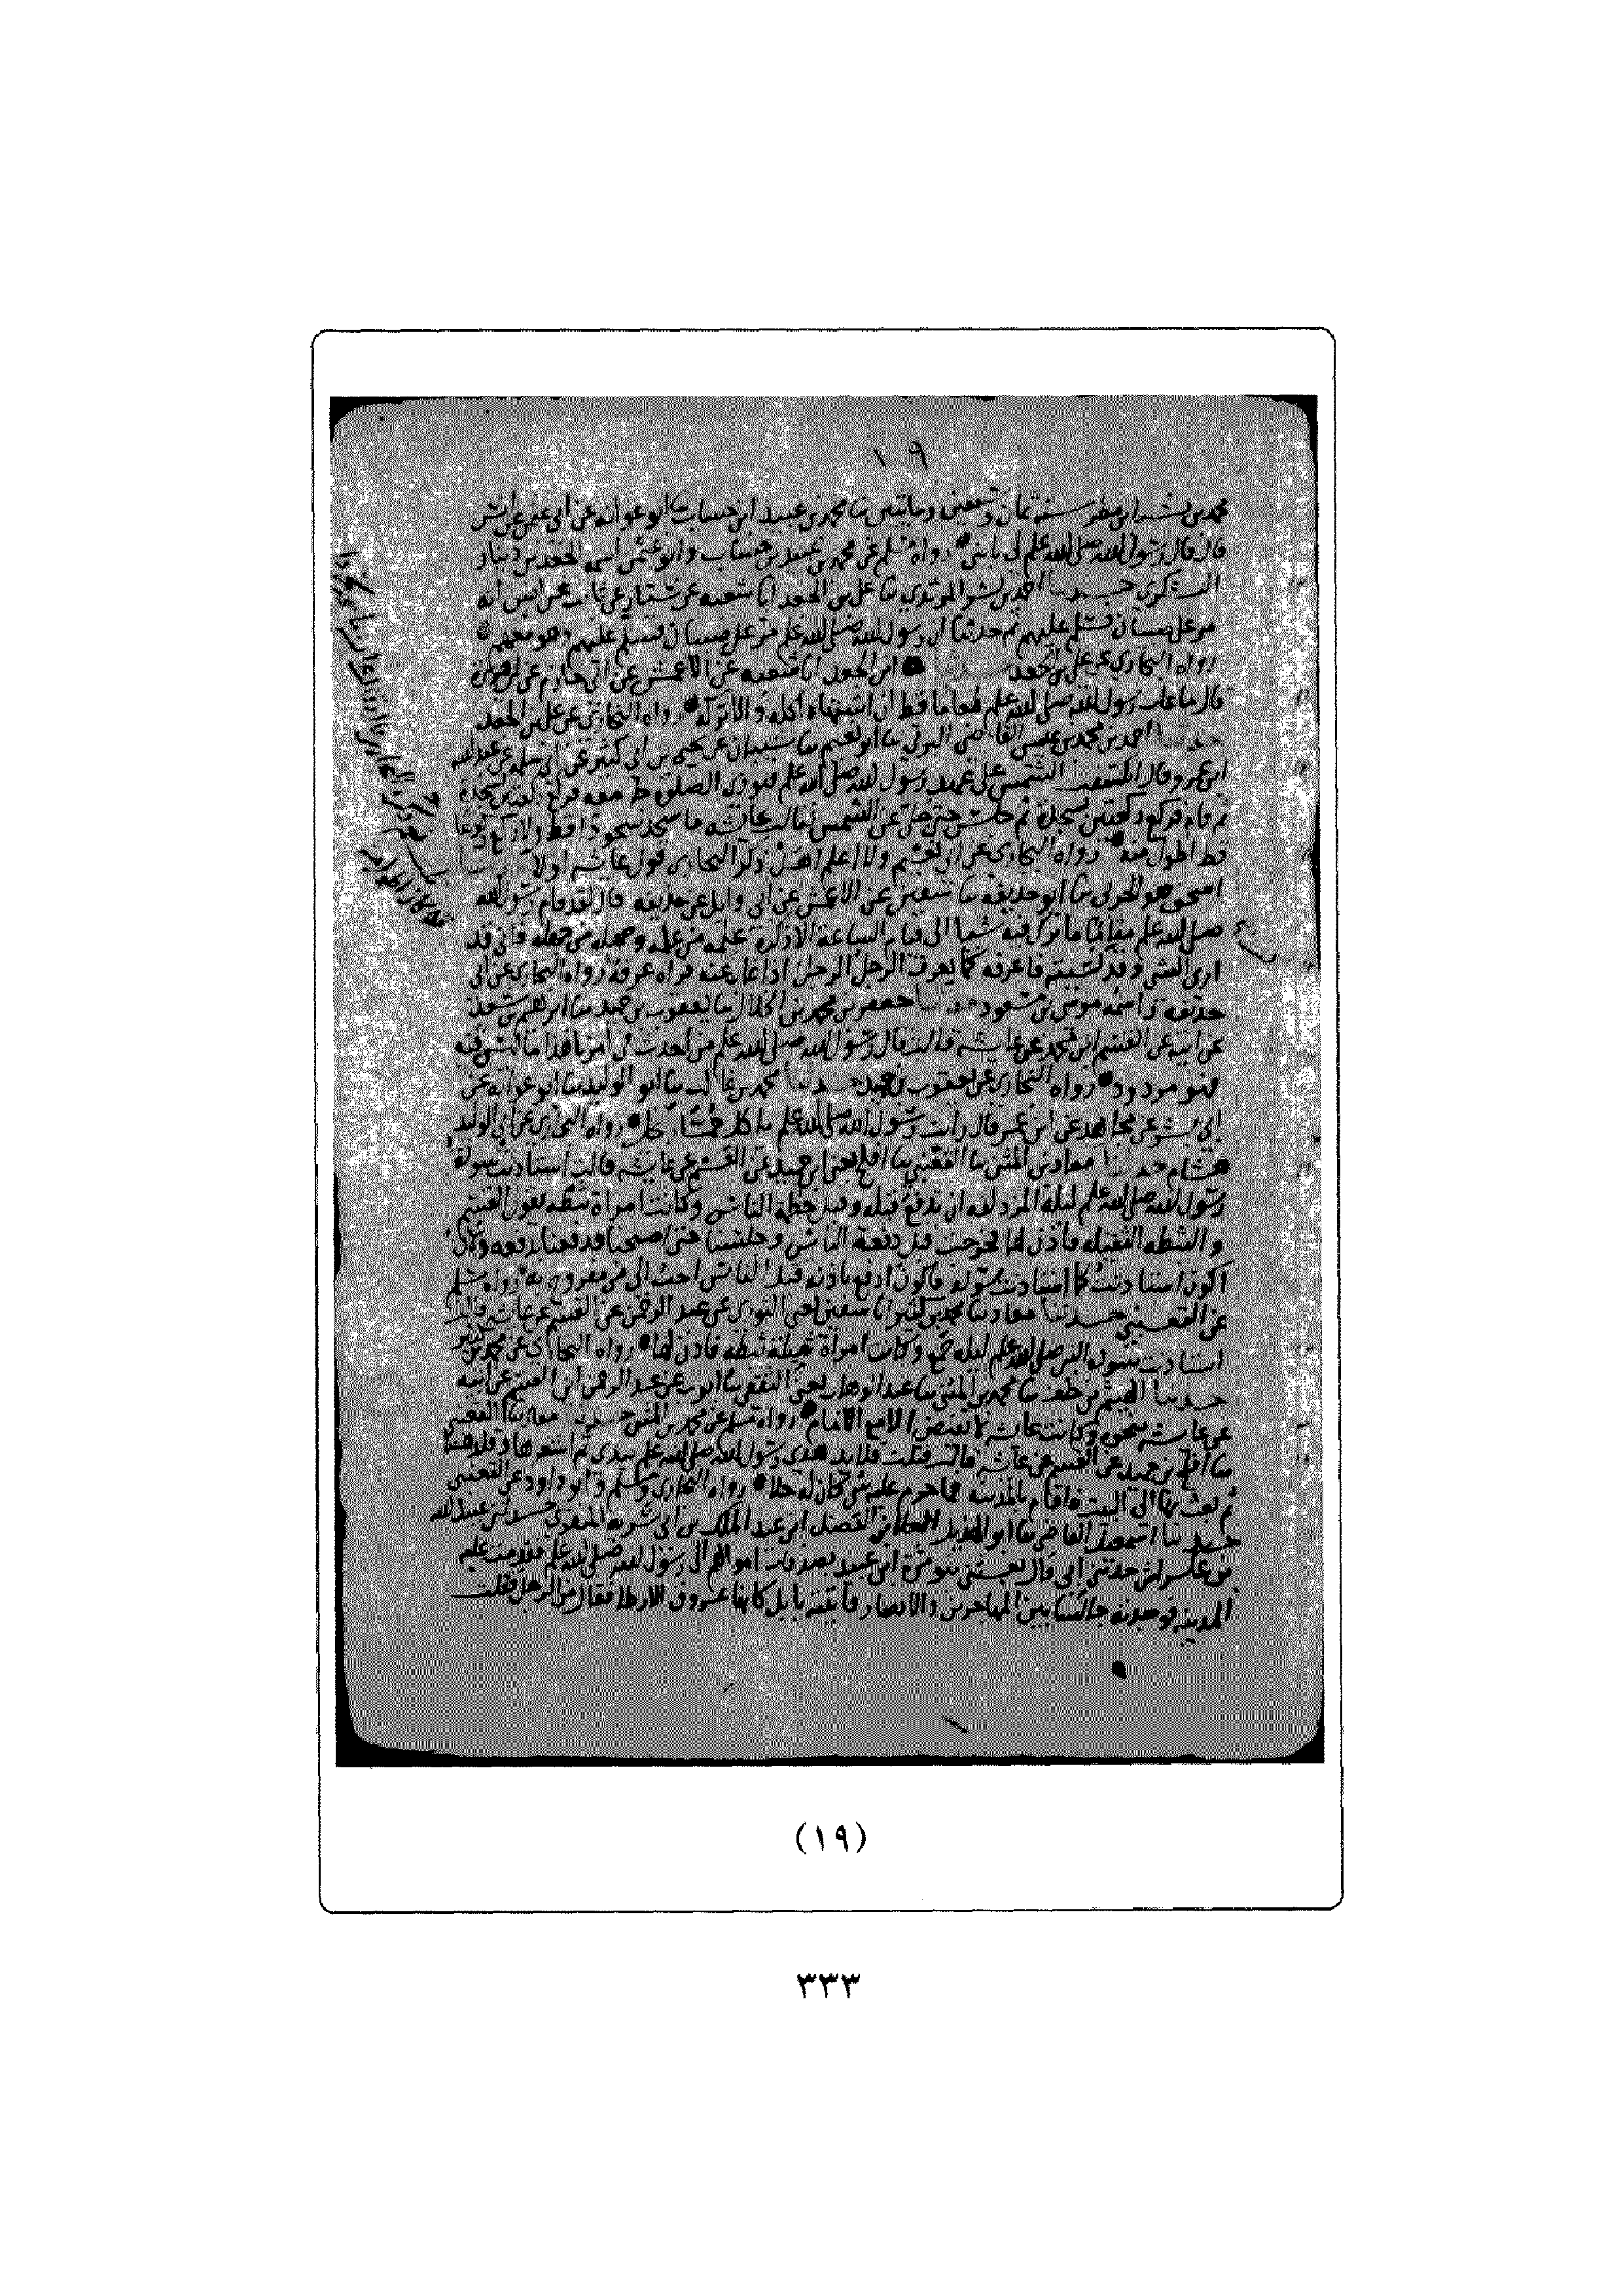 ١٩
محمد بن بشر ابن مطر سنة ثمان وتسعين ومايتين نا محمد بن عبيد ابن حساب نا ابو عوانه عن ابي عثمن عن انس
قال قال رسول الله صلى الله علم لى يا بنى رواه مسلم عن محمد بن عبيد بن حساب وابو عثمن اسمه الجعد بن دينار
اليشكرى حدثنا احمد بن بشر المرثدي نا على بن الجعد انا شعبه عن سيار عن ثابت عن انس انه
مر على صبيان فسلم عليهم ثم حدثنا ان رسول الله صلى الله علم مر على صبيان فسلم عليهم وهو معهم
رواه البخارى عن على بن الجعد ابن الجعد انا شعبه عن الاعمش عن ابي حازم عن ابي هريرة
قال ما عاب رسول الله صلى الله علم طعاما قط ان اشتهاه اكله والا تركه رواه البخارى عن على بن الجعد
حدثنا احمد بن محمد بن عيسى القاضى البرتي نا ابو نعيم نا شيبان عن يحيى بن ابي كثير عن ابي سلمه عن عبد الله
ابن عمرو قال انكسفت الشمس على عهد رسول الله صلى الله علم فنودى الصلوة جامعه فركع ركعتين بسجدة
ثم قام فركع ركعتين بسجدة ثم جلس حتى جلى عن الشمس فقالت عائشه ما سجد سجودا قط ولا ركع ركوعا
قط اطول منه رواه البخارى عن ابي نعيم ولا اعلم ذكر البخارى قول عائشه او لا
اسحق هو الحربي نا ابو حذيفه نا سفين عن الاعمش عن ابي وايل عن حذيفه قال لقد قام رسول الله
صلى الله علم مقاما ما ترك فيه شيا الى قيام الساعة الا ذكره علمه من علمه وجهله من جهله فاني قد
ارى الشى وقد نسيته فاعرفه كما يعرف الرجل الرجل اذا غاب عنه فراه عرفه رواه البخارى عن ابي
حذيفه واسمه موسى بن مسعود حدثنا جعفر بن محمد بن الخلال نا يعقوب بن حميد نا ابرهيم بن سعد
عن ابيه عن القسم ابن محمد عن عايشه قالت قال رسول الله صلى الله علم من احدث في امرنا هذا ما ليس فيه
فهو مردود رواه البخارى عن يعقوب بن حميد حدثنا محمد بن غالب نا ابو الوليد نا ابو عوانه عن
ابي بشر عن مجاهد عن ابن عمر قال رايت رسول الله صلى الله علم ياكل جمار نخل رواه البخارى عن ابي الوليد
هشام حدثنا معاذ بن المثنى نا القعنبي نا افلح يعنى ابن حميد عن القسم عن عايشه قالت استاذنت سودة
رسول الله صلى الله علم ليلة المزدلفه ان تدفع قبله وقبل حطمة الناس وكانت امراة ثبطه يقول القسم
والثبطه الثقيله فاذن لها فخرجت قبل دفعة الناس وحبسنا حتى اصبحنا فدفعنا بدفعه ولان
اكون استاذنت كما استاذنت سوده فاكون ادفع باذنه قبل الناس احب الى من مفروح به رواه مسلم
عن القعنبي حدثنا معاذ نا محمد بن كثير انا سفين يعنى الثورى عن عبد الرحمن عن القسم عن عايشه قالت
استاذنت سوده النبي صلى الله علم ليله جمع وكانت امرأة ثقيله ثبطه فاذن لها رواه البخارى عن محمد بن كثير
حدثنا الهيثم بن خلف نا محمد بن المثنى نا عبد الوهاب يعنى الثقفى نا ايوب عن عبد الرحمن ابن القسم عن ابيه
عن عايشه بنحوه وكانت عايشه لا تفيض الا مع الامام رواه مسلم عن محمد بن المثنى حدثنا معاذ نا القعنبي
نا افلح بن حميد عن القسم عن عايشه قالت فتلت قلايد هدى رسول الله صلى الله علم بيدى ثم اشعرها وقلدها
ثم بعث بها الى البيت فاقام بالمدينه فما حرم عليه شى كان له حلا رواه البخارى ومسلم وابو داود عن القعنبي
حدثنا اسمعيل القاضى نا ابو الهذيل العلا بن الفضل ابن عبد الملك بن ابي سويه المنقرى حدثني عبيد الله
بن عكراش حدثني ابي قال بعثتني بنو مرة ابن عبيد بصدقات اموالهم الى رسول الله صلى الله علم فقدمت عليه
المدينه فوجدته جالسا بين المهاجرين والانصار فاتيته بابل كانها عروق الارطا فقال من الرجل فقلت
(١٩)
٣٣٣